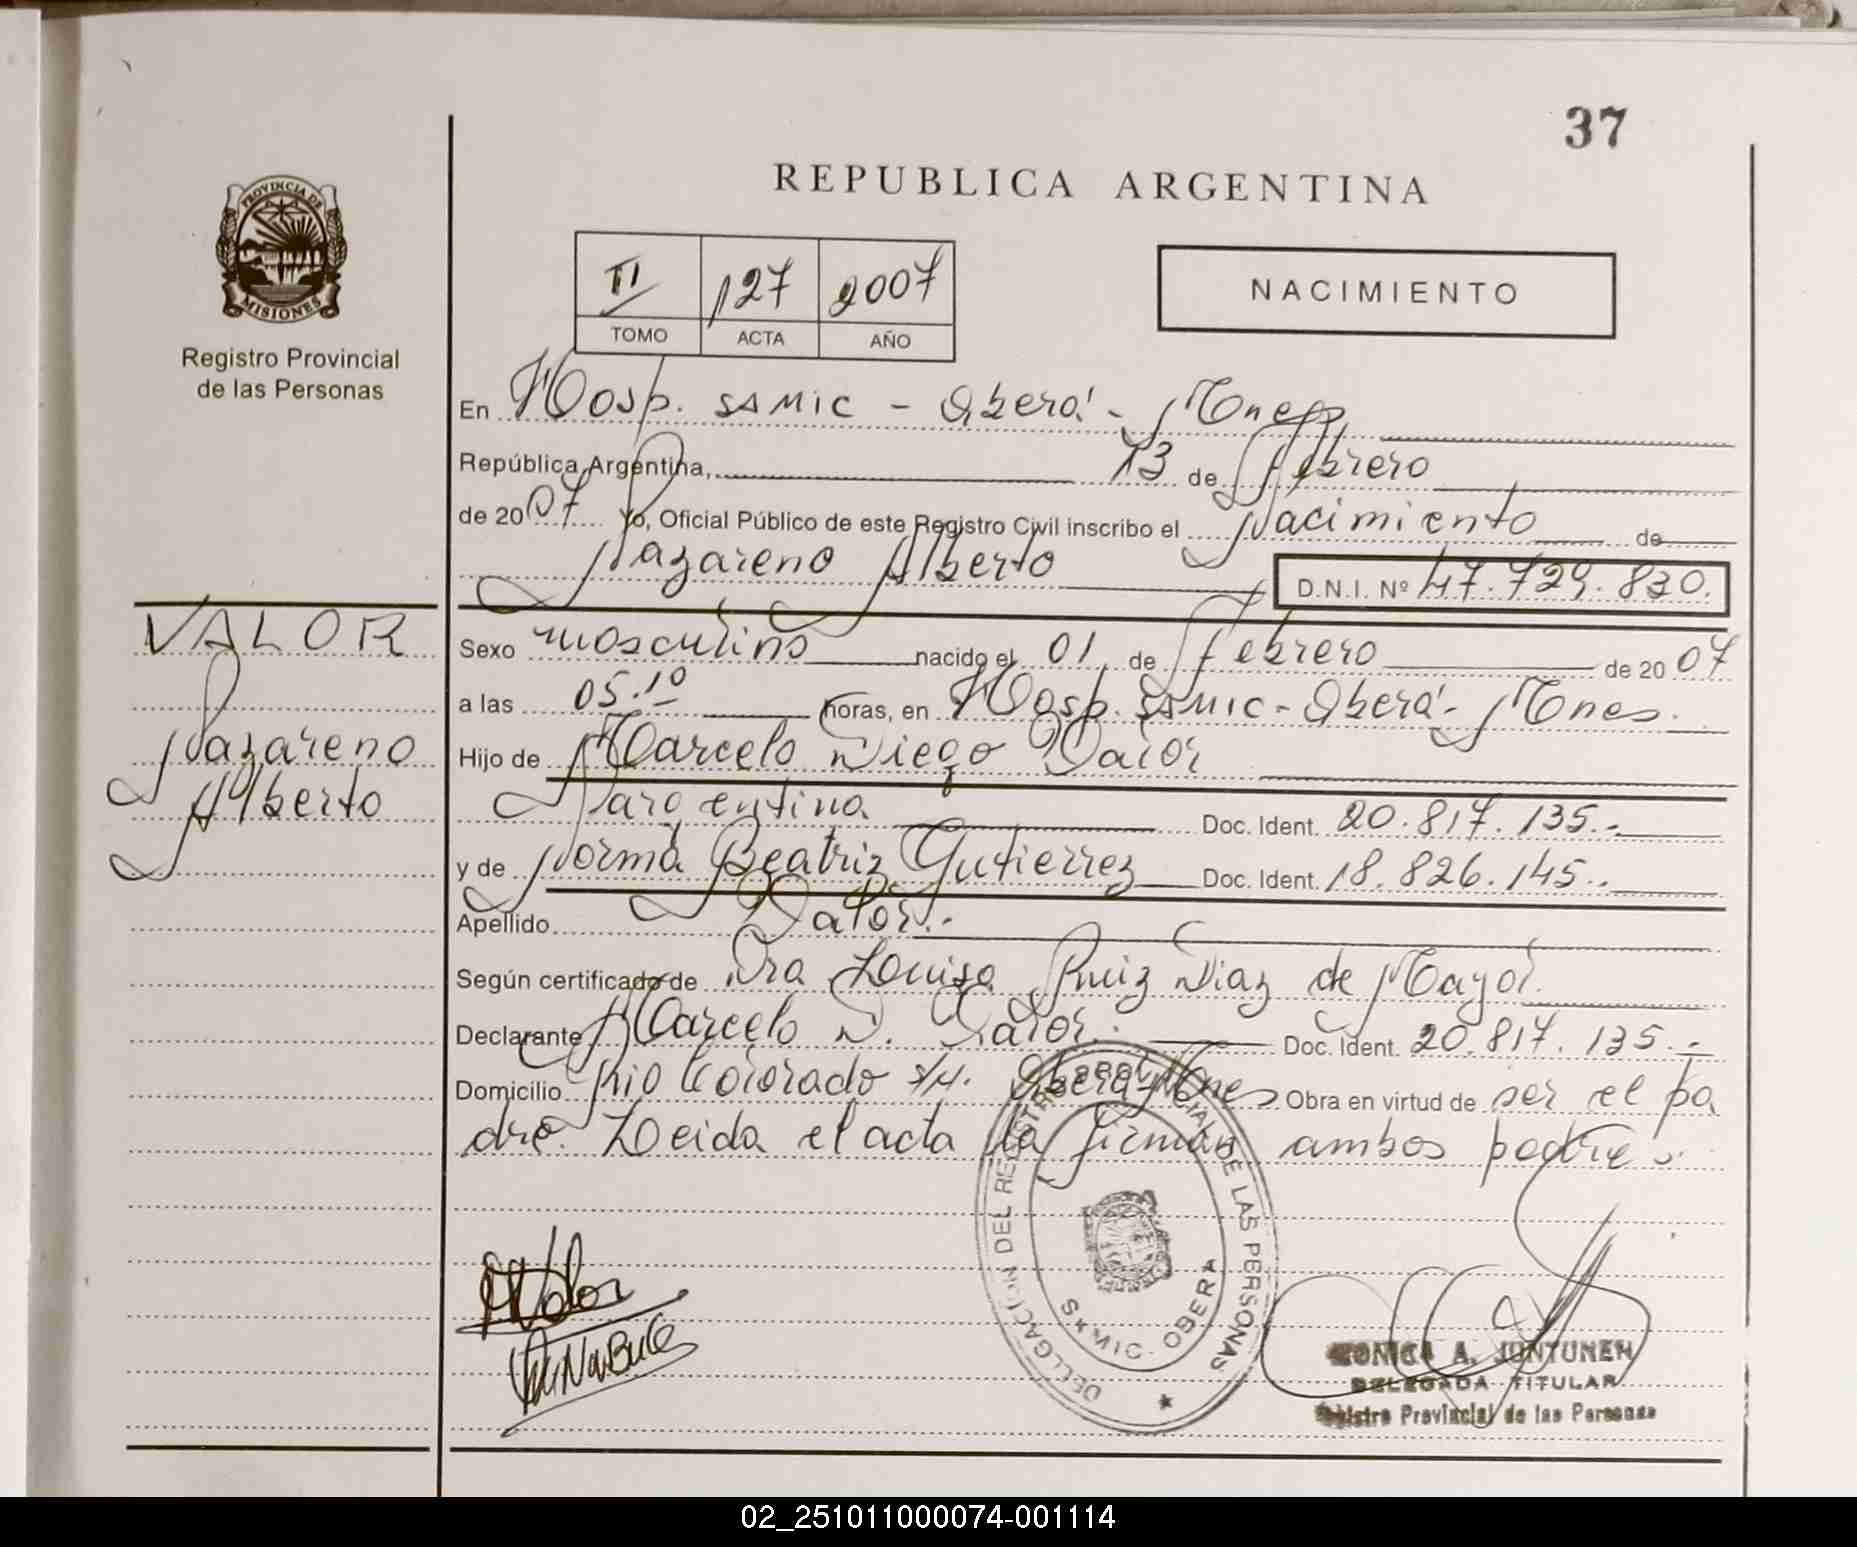 37
REPUBLICA ARGENTINA
PROVINCIA DE
MISIONES
Registro Provincial
de las Personas
II 127 2007
TOMO ACTA AÑO
NACIMIENTO
En Hosp. SAMIC - Oberá - Mnes
República Argentina, 13 de Febrero
de 2007 Yo, Oficial Público de este Registro Civil inscribo el Nacimiento de
Nazareno Alberto D.N.I. Nº 47.729.830.
VALOR
Nazareno
Alberto
Sexo masculino nacido el 01 de Febrero de 2007
a las 05.10 horas, en Hosp. SAMIC - Oberá - Mnes.
Hijo de Marcelo Diego Valor
argentina Doc. Ident. 20.817.135.-
y de Norma Beatriz Gutierrez Doc. Ident. 18.826.145.-
Apellido Valor.-
Según certificado de Dra Louisa Ruiz Diaz de Mayol.
Declarante Marcelo D. Valor. Doc. Ident. 20.817.135.-
Domicilio Rio Colorado s/n. Oberá - Mnes Obra en virtud de ser el pa
dre. Leida el acta la firman ambos padres.
DELEGACION DEL REGISTRO PROVINCIAL DE LAS PERSONAS
SAMIC - OBERA
MONICA A. JUNTUNEN
DELEGADA TITULAR
Registro Provincial de las Personas
02_251011000074-001114